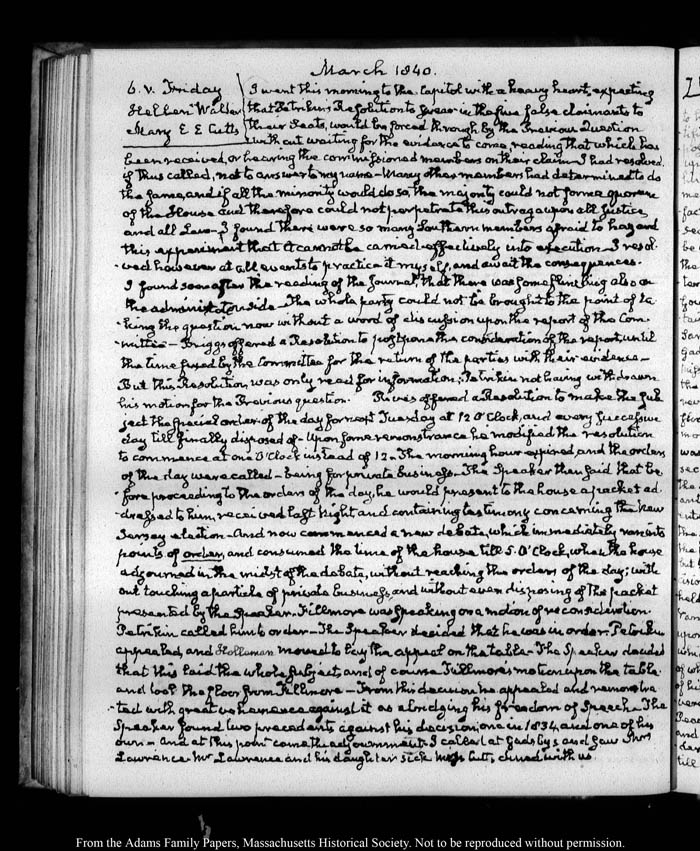 March 1840.
6. V. Friday
Hellen Walter
Mary E E Cutts
I went this morning to the Capitol with a heavy heart, expecting
that Petrikin's Resolution to swear in the five false claimants to
their Seats, would be forced through by the Previous Question
without waiting for the evidence to come, reading that which has
been received, or hearing the commissioned members on their claim. I had resolved
if thus called, not to answer to my name— Many other members had determined to do
the same, and if all the minority would do so, the majority could not form a quorum
of the House and therefore could not perpetrate this outrage upon all Justice
and all Law— I found there were so many Southern members afraid to hazard
this experiment that it cannot be carried effectively into execution— I resol-
-ved however at all events to practice it myself, and await the consequences.
I found soon after the reading of the Journal, that there was some flinching also on
the administration side— The whole party could not be brought to the point of ta-
-king the question now without a word of discussion upon the report of the Com-
-mittee— Briggs offered a Resolution to postpone the consideration of the report, until
the time fixed by the Committee for the return of the parties with their evidence—
But this Resolution was only read for information; Petrikin not having withdrawn
his motion for the Previous question. Rives offered a Resolution to make the sub-
ject the special order of the day for next Tuesday at 12 O'Clock, and every successive
day till finally disposed of— Upon some remonstrance he modified the resolution
to commence at one O'Clock instead of 12— The morning hour expired, and the orders
of the day were called— being for private business— The Speaker then said that be-
-fore proceeding to the orders of the day, he would present to the house a packet ad-
-dressed to him, received last Night and containing testimony concerning the New
Jersey election— And now commenced a new debate, which immediately ran into
points of order, and consumed the time of the house till 5. O'Clock, when the house
adjourned in the midst of the debate, without reaching the orders of the day; with-
out touching a particle of private business, and without even disposing of the packet
presented by the Speaker. Fillmore was speaking on a motion of reconsideration.
Petrikin called him to order— The Speaker decided that he was in order. Petrikin
appealed, and Holleman moved to lay the appeal on the table— The Speaker decided
that this laid the whole subject, and of course Fillmore's motion upon the table
and took the floor from Fillmore— From this decision he appealed and remonstra-
-ted with great vehemence against it as abridging his freedom of Speech— The
Speaker found two precedents against his decision, one in 1834, and one of his
own— and at this point came the adjournment. I called at Gadsby's and saw Thos
Lawrence. Mr Lawrence and his daughter sick Miss Cutts dined with us
From the Adams Family Papers, Massachusetts Historical Society. Not to be reproduced without permission.